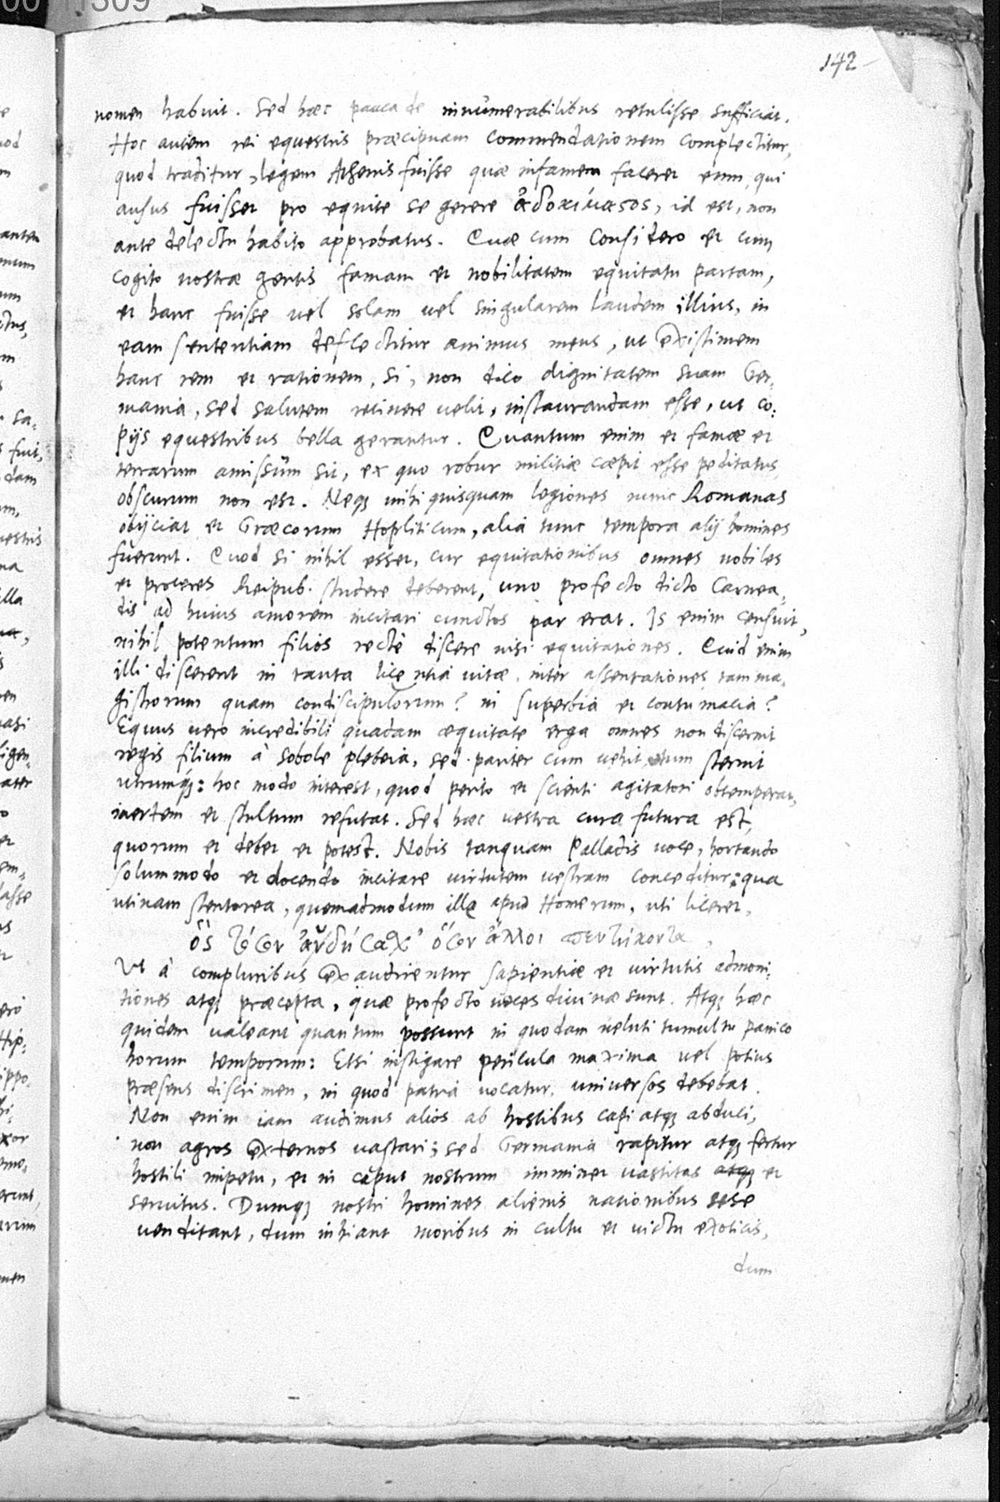 142
nomen habuit. Sed hæc pauca de innumerabilibus retulisse sufficiat.
Hoc autem rei equestris præcipuam commendationem complectitur,
quod traditur, legem Athenis fuisse quæ infamem faceret eum, qui
ausus fuisset pro equite se gerere ἀδοκίμαςος, id est, non
ante delectu habito approbatus. Quæ cum considero et cum
cogito nostræ gentis famam et nobilitatem equitatu partam,
et hanc fuisse vel solam vel singularem laudem illius, in
eam sententiam deflectitur animus meus, ut existimem
hanc rem et rationem, si, non dico dignitatem suam Ger,
mania, sed salutem retinere velit, instaurandam esse, ut co:
pijs equestribus bella gerantur. Quantum enim et famæ et
terrarum amissum sit, ex quo robur militiæ cæpit esse peditatus
obscurum non est. Neq; mihi quisquam legiones nunc Romanas
obijciat et Græcorum Hopliticum, alia tunc tempora alij homines
fuerunt. Quod si nihil esset, cur equitationibus omnes nobiles
et proceres Reipub. studere deberent, uno profecto dicto Carnea,
dis ad huius amorem incitari cunctos par erat. Is enim censuit,
nihil potentum filios recte discere nisi equitationes. Quid enim
illi discerent in tanta licentia vitæ, inter assentationes tam ma,
gistrorum quam condiscipulorum? in superbia et contumacia?
Equus vero incredibili quadam æquitate erga omnes non discernit
regis filium à sobole plebeia, sed pariter cum vehit, tum sternit
utrumq;: hoc modo interest, quod perito et scienti agitatori obtemperat,
inertem et stultum refutat. Sed hæc vestra cura futura est,
quorum et debet et potest. Nobis tanquam Palladis voce, hortando
solummodo et docendo incitare virtutem vestram conceditur: qua
utinam stentorea, quemadmodum illa apud Homerum, uti liceret,
ὃς τόσον αὐδήσασχ' ὅσον ἄλλοι πεντήκοντα,
Ut à compluribus exaudirentur sapientiæ et virtutis admoni,
tiones atq; præcepta, quæ profecto voces divinæ sunt. Atq; hæc
quidem valeant quantum possunt in quodam veluti tumultu panico
horum temporum: Etsi instigare pericula maxima vel potius
præsens discrimen, in quod patria vocatur, universos debebat.
Non enim iam audimus alios ab hostibus capi atq; abduci,
non agros externos vastari; sed Germania rapitur atq; fertur
hostili impetu, et in caput nostrum imminet vastitas atq; et
servitus. Dumq; nostri homines alienis nationibus sese
venditant, dum inhiant moribus in cultu et victu exoticis,
dum